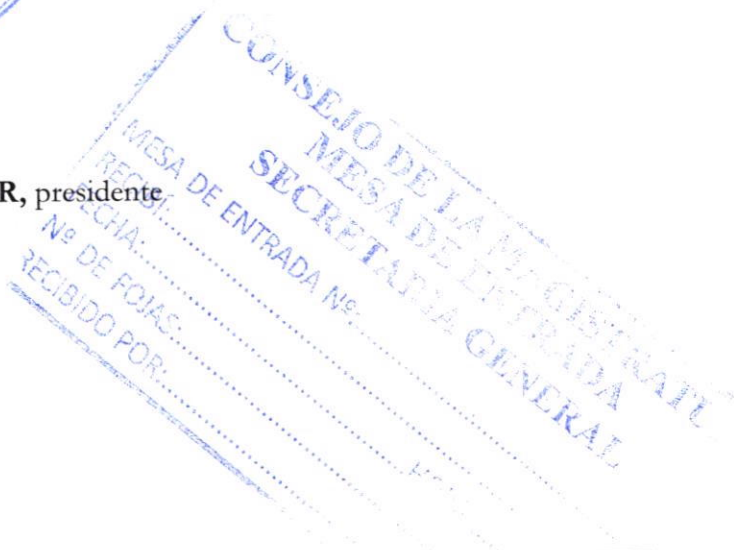 R, presidente
CONSEJO DE LA MAGISTRATU
MESA DE ENTRADA
SECRETARIA GENERAL
MESA DE ENTRADA Nº:
RECIBI:
FECHA:
Nº DE FOJAS:
RECIBIDO POR: